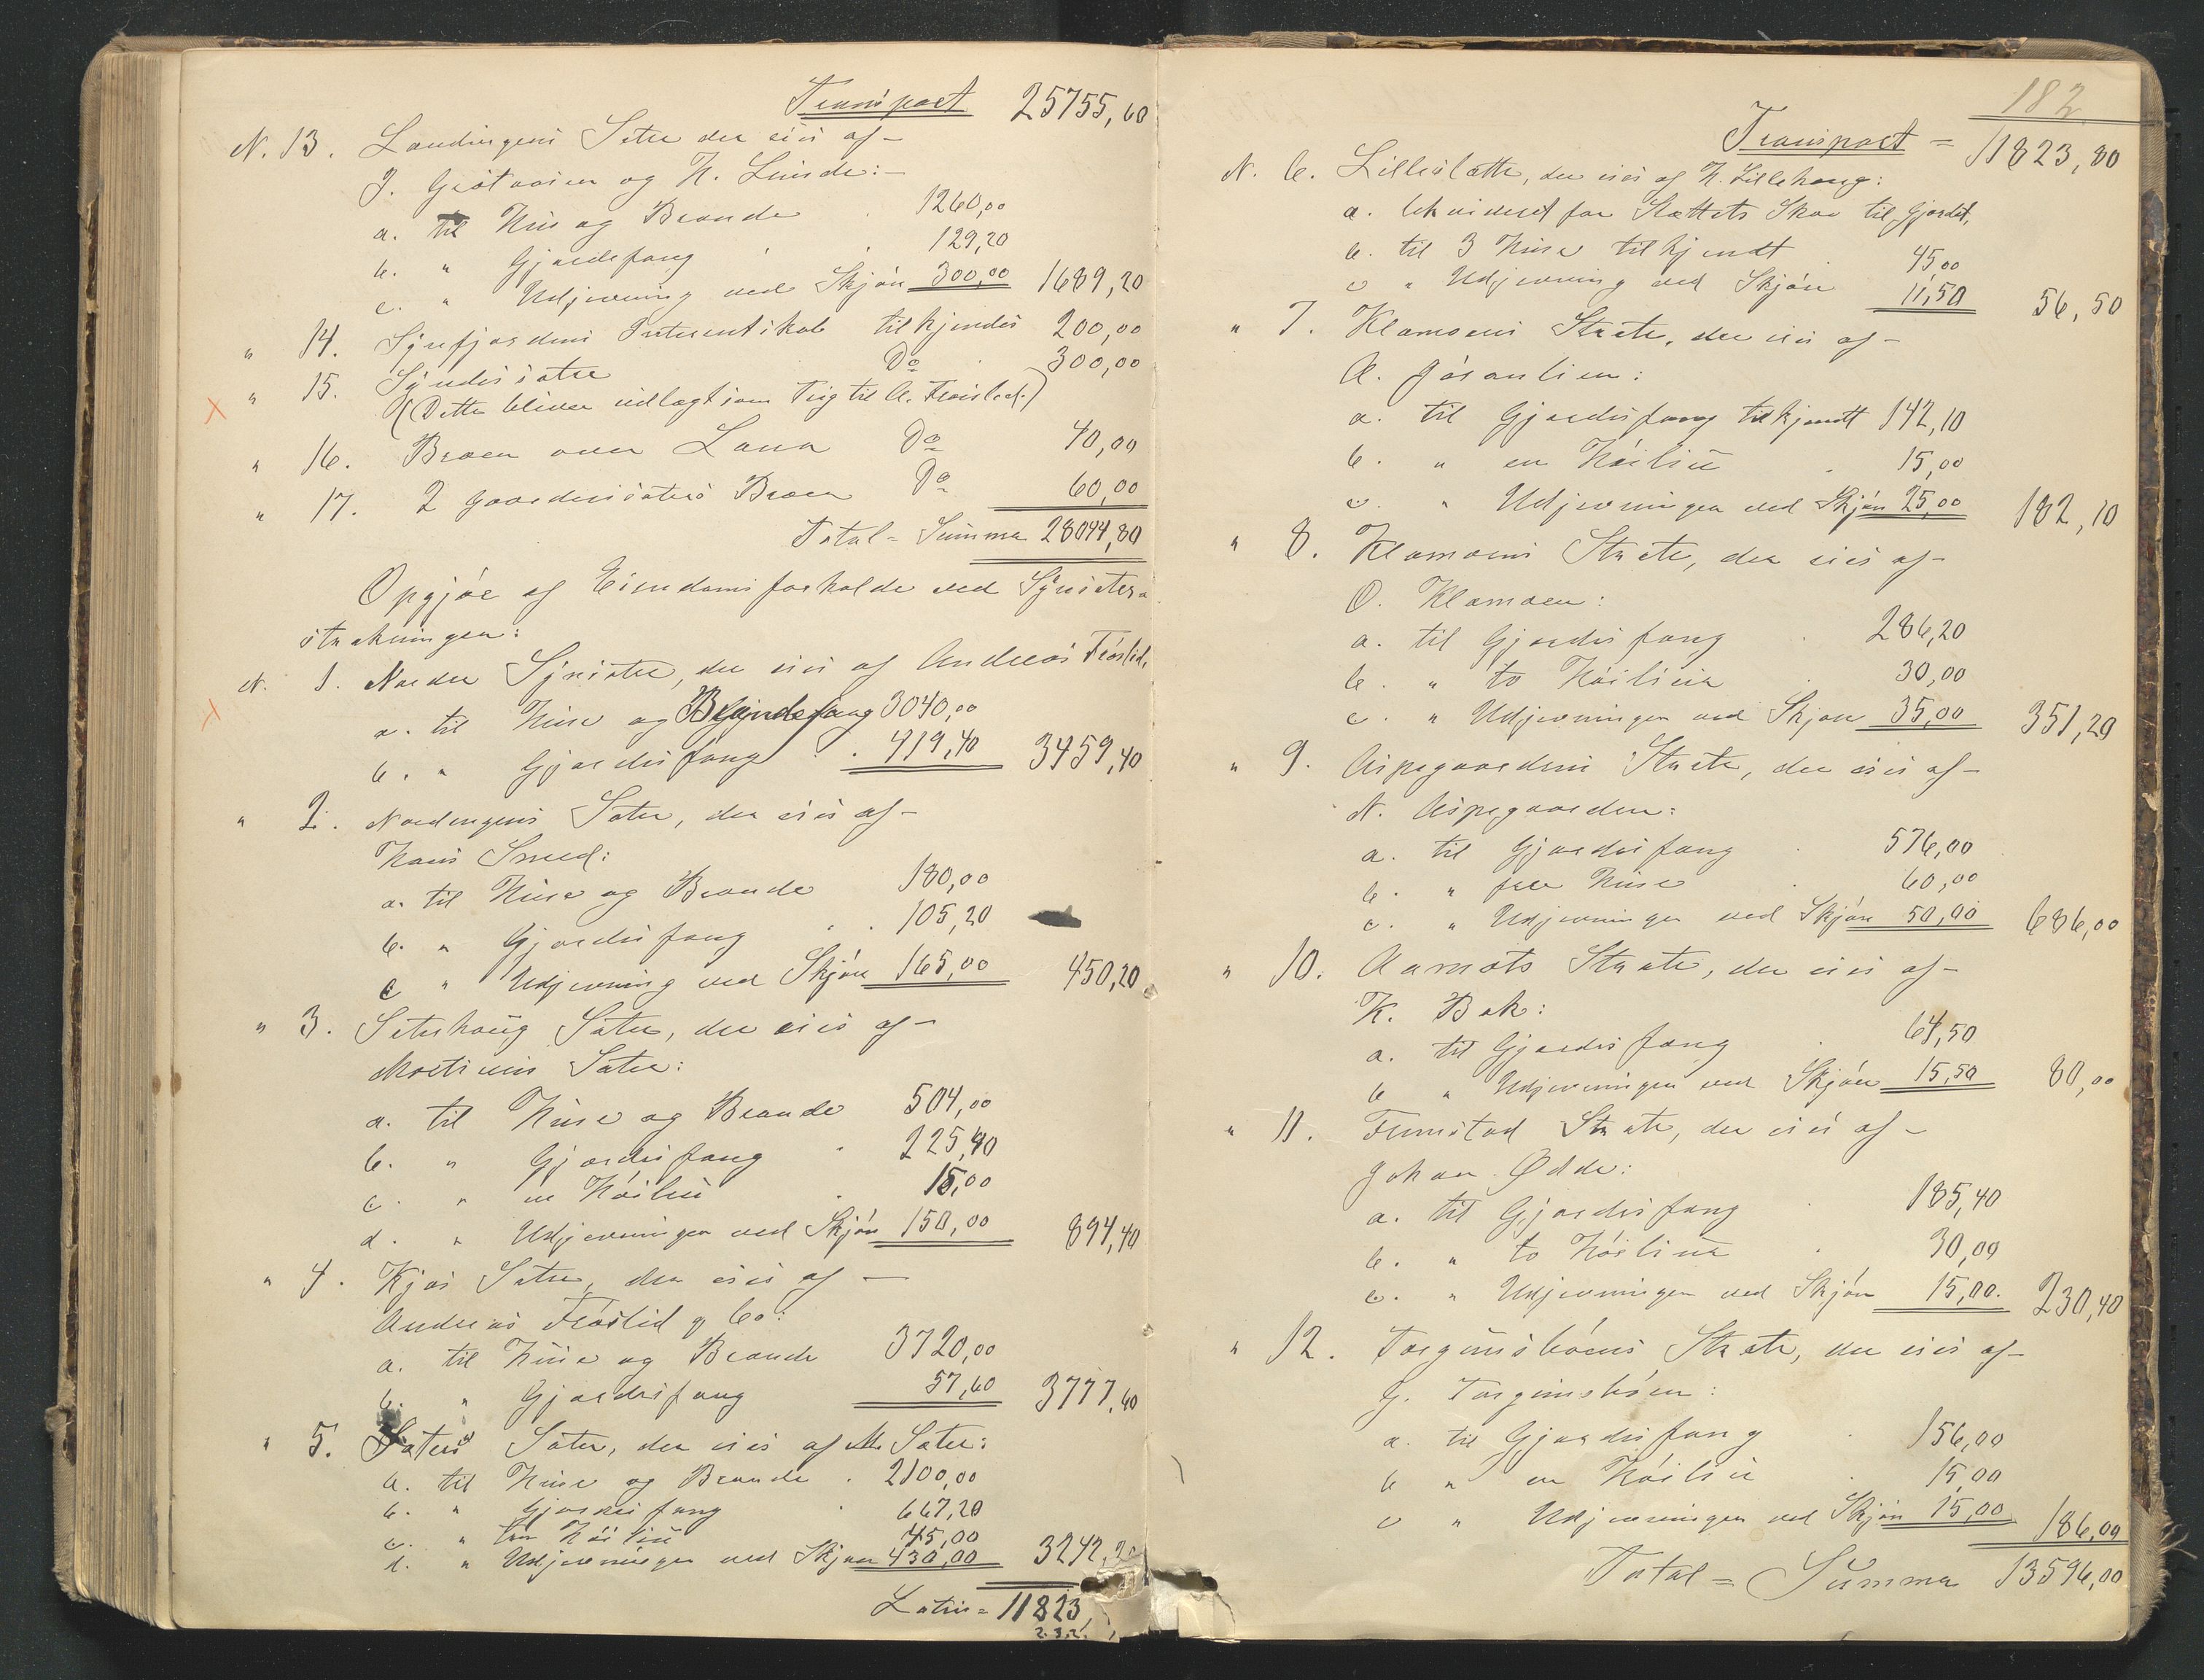 Transport 25755,60
N. 13. Landingens Sæter der eies af –
J. Grötaasen og H. Linde: –
a. til Huse og Brande . 1260,00
b. " Gjærdefang . 129,20
c. " Udjevning ved Skjön 300,00 1689,20
" 14. Synfjordens Interentskab tilkjendes 200,00
" 15. Syndissæter Do 300,00
(Dette bliver udlagt som Teig til A. Fröislid.)
" 16. Broen over Lena Do 40,00
" 17. 2 Gaardenssæters Broen Do 60,00
Total = Summa 28044,80
Opgjör af Eiendomsforholde ved Synsæter=
strækningen:
N. 1. Nordre Synsæter, der eies af Andreas Fröslid,
a. til Huse og Brændefang 3040,00
b. " Gjærdesfang . 419,40 3459,40
" 2. Nordengens Sæter, der eies af –
Hans Smed:
a. til Huse og Brande 180,00
b. " Gjærdesfang . 105,20
c " Udjevning ved Skjön 165,00 450,20
" 3. Seterhaug Sæter, der eies af –
Mortinus Sæter:
a. til Huse og Brande 504,00
b. " Gjærdesfang . 225,40
c. " en Höilöe . 15,00
d. " Udjevningen ved Skjön 150,00 894,40
" 4. Kjös Sæter, der eies af —
Andreas Fröslid & Co:
a. til Huse og Brande 3720,00
b. " Gjærdesfang 57,60 3777,60
" 5. Sæters Sæter, der eies af M. Sæter:
a. til Huse og Brande . 2100,00
b. " Gjærdesfang . 667,20
c. " tre Höilöe 45,00
d. " Udjevningen ved Skjön 430,00 3242,20
Latus = 11823,
182
Transport = 11823,80
N. 6. Lilleslætte, der eies af H. Lillehaug:
a. Erhvidert for Slættets Skov til Gjærdet,
b. til 3 Huse tilkjendt . 45,00
c " Udjevning ved Skjön 11,50 56,50
" 7. Klamoens Stræte, der eies af –
A. Jösenlien:
a. til Gjærdesfang tilkjendt 142,10
b. " en Höilöe . 15,00
c. " Udjevningen ved Skjön 25,00 182,10
" 8. Klamoens Stræte, der eies af –
O. Klamoen:
a. til Gjærdesfang . 286,20
b. " to Höilöer . 30,00
c. " Udjevningen ved Skjön 35,00 351,20
" 9. Aspegaardens Stræte, der eies af –
N. Aspegaarden:
a. til Gjærdesfang . 576,00
b. " fire Huse . 60,00
c. " Udjevningen ved Skjön 50,00 686,00
" 10. Aamots Stræte, der eies af –
K. Bak:
a. til Gjærdesfang . 64,50
b " Udjevningen ved Skjön 15,50 80,00
" 11. Finnstad Stræte, der eies af –
Johan Ødde:
a. til Gjærdesfang . 185,40
b. " to Höilöer . 30,00
c. " Udjevningen ved Skjön 15,00. 230,40
" 12. Torgunsböens Stræte, der eies af –
G. Torgunsböen:
a. til Gjærdesfang . 156,00
b " en Höilöe . 15,00
c " Udjevningen ved Skjön 15,00 186,00
Total = Summa 13596,00